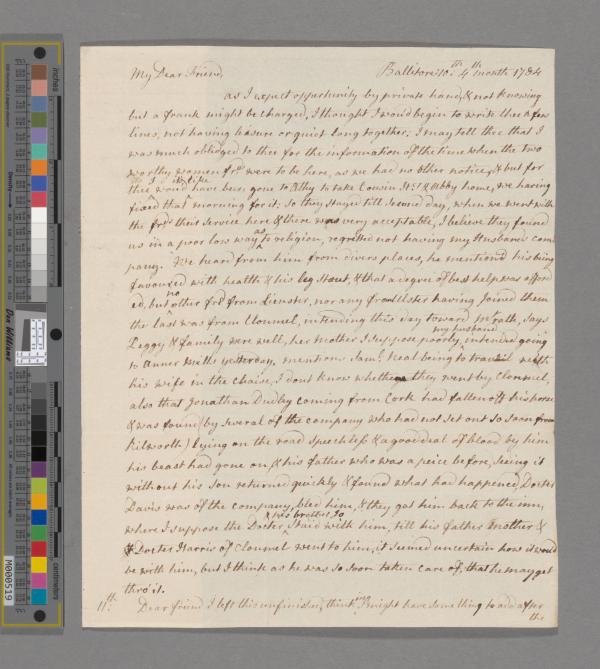 My Dear Friend, Ballitore: 10th. 4th month 1784
as I expect oppertunity by private hand, & not knowing
but a frank might be charged, I thought I would begin to write thee a few
lines, not having leasure or quiet long together; I may tell thee that I
was much obliedged to thee for the information of the time when the two
worthy women frds were to be here, as we had no other notice, & but for
thee would have been gone to Athy to take Cousin & Abby home, we having
fixed that morning for it; so they stayed till second day, when we went with
the frds. their service here & there was very acceptable, I believe they found
us in a poor low way as to religion, regretted not having my Husbands com
pany. We heard from him from divers places, he mentiond his being
favoured with health & his leg stout, & that a degree of best help was afford
ed, but no other frd from Leinster, nor any from Ulster having joined them
the last was from Clonmel, intending this day toward Mt.rath, says
Peggy & family were well, her Mother I suppose poorly, my husband intended going
to Anner Mills yesterday, mentions Saml. Neal being to travel with
his wife in the chaise, I dont know whether they went by Clonmel,
also that Jonathan Dudley coming from Cork had fallen off his horse
& was found (by several of the company who had not set out so soon from
Kilworth) lying on the road speechless & a good deal of blood by him
his beast had gone on, & his father who was a peice before, seeing it
without his son returned quickly & found what had happened, Docter
Davis was of the company, bled him, & they got him back to the inn,
where I suppose the Docter & his brother Jo staid with him, till his father Mother &
Docter Harris of Clonmel went to him, it seemed uncertain how it would
be with him, but I think as he was so soon taken care of, that he may get
thro' it.
11th. Dear friend I left this unfinished, thinking I might have something to add after
the